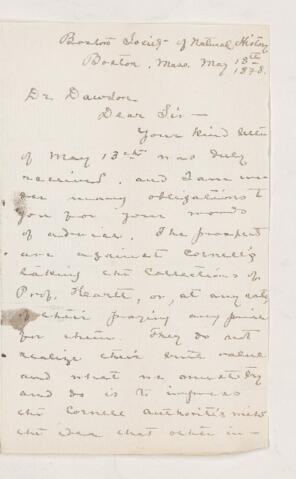 Boston Society of Natural History
Boston, Mass. May 18th
1878.
Dr. Dawson
Dear Sir —
Your kind letter
of May 13th was duly
received, and I am un-
der many obligations to
you for your words
of advice. The prospects
are against Cornell's
taking the collections of
Prof. Hartt, or, at any rate
of their paying any price
for them. They do not
realize their true value
and what we must try
and do is to impress
the Cornell authorities with
the idea that other in-